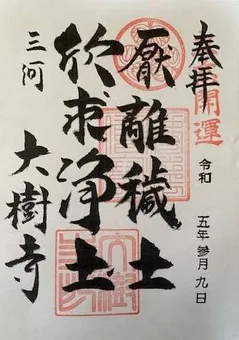 奉拝
開運
令和 五年 参月 九日
厭離穢土
欣求浄土
三河
大樹寺